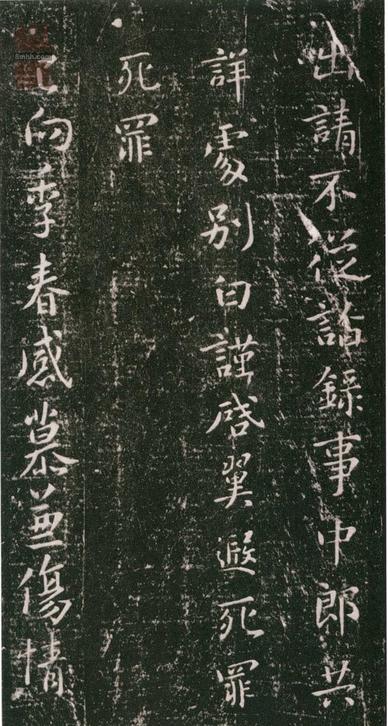 出請不從詣錄事中郎共
詳處別白謹啓翼遯死罪
死罪
向季春感慕兼傷情
8mhh.com